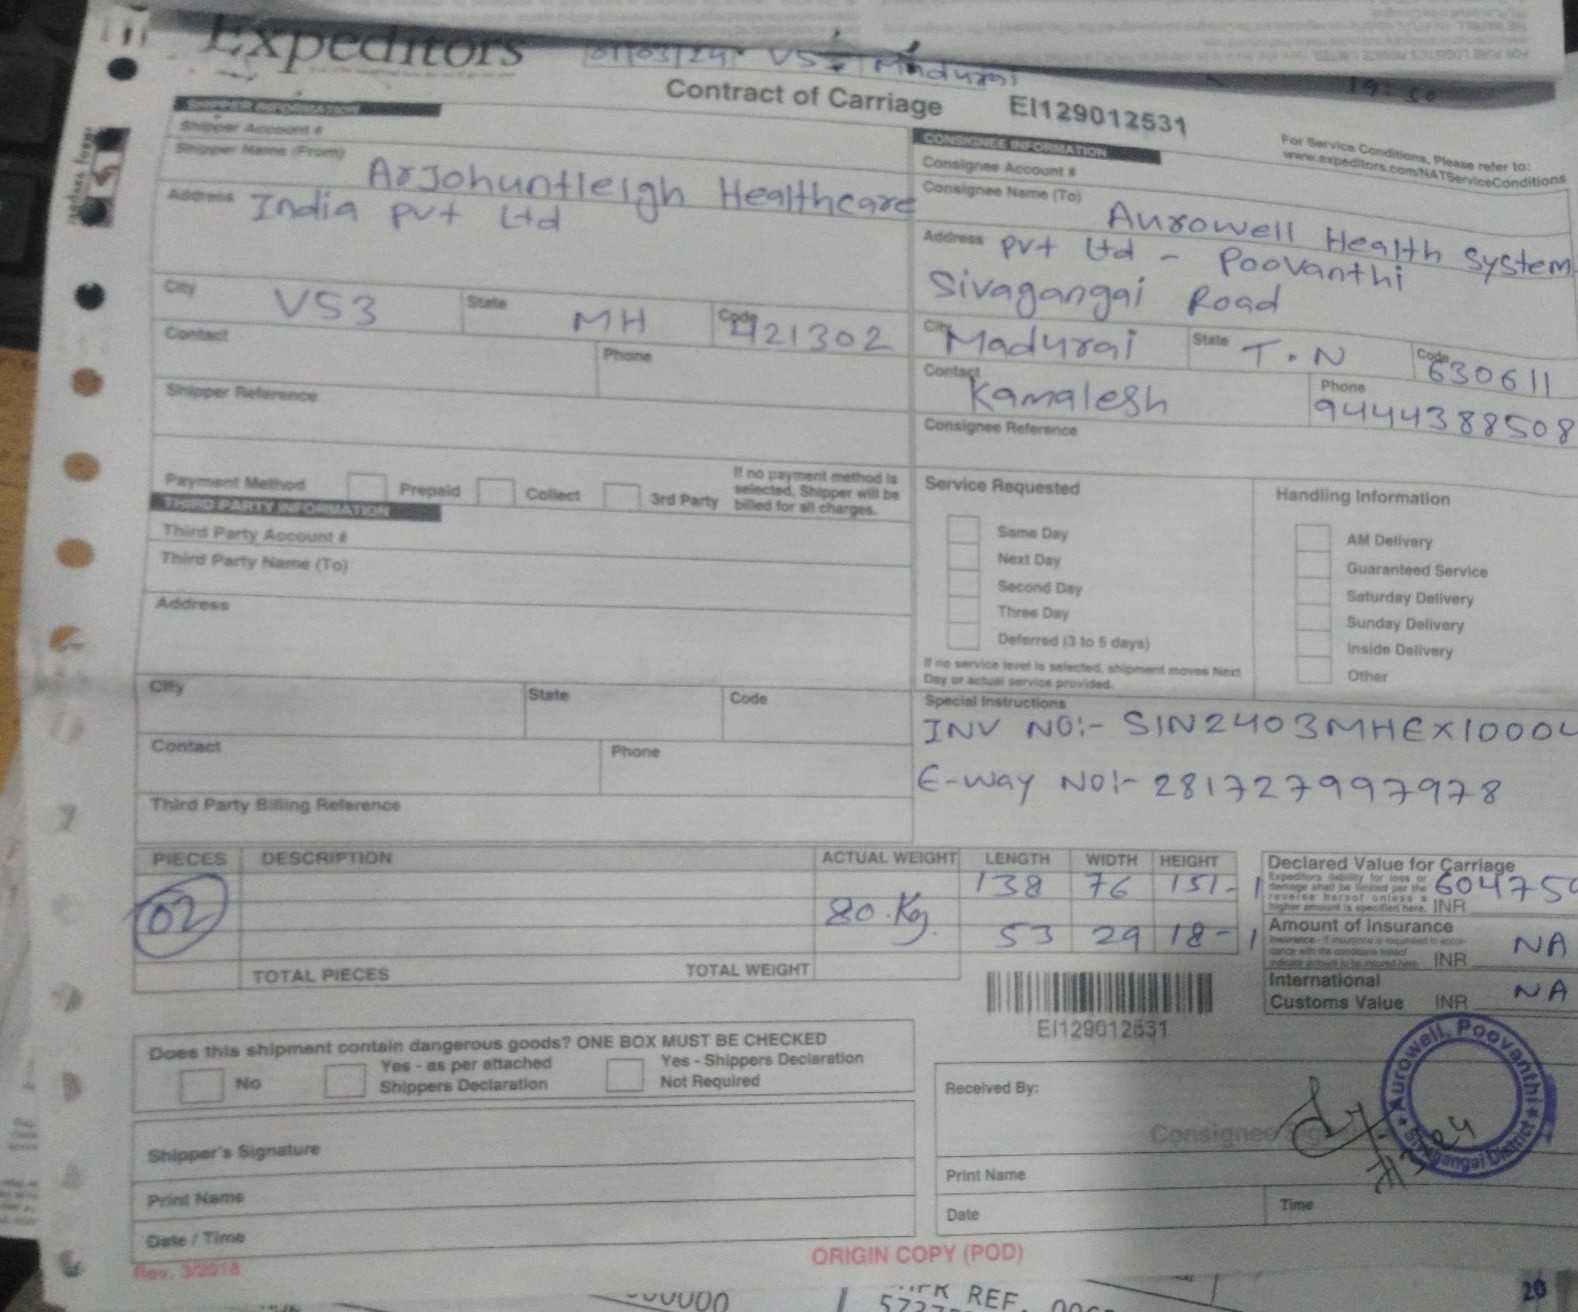 Expeditors
01/03/24 VS3 Madurai
19:50
Contract of Carriage
EI129012531
For Service Conditions, Please refer to:
www.expeditors.com/NATServiceConditions
SHIPPER INFORMATION
Shipper Account #
Shipper Name (From)
ArJohuntleigh Healthcare
Address India Pvt Ltd
City VS3
State MH
Code 421302
Contact
Phone
Shipper Reference
Payment Method
Prepaid
Collect
3rd Party
If no payment method is
selected, Shipper will be
billed for all charges.
CONSIGNEE INFORMATION
Consignee Account #
Consignee Name (To)
Aurowell Health System
Address Pvt Ltd - Poovanthi
Sivagangai Road
City Madurai
State T.N
Code 630611
Contact Kamalesh
Phone 9444388508
Consignee Reference
THIRD PARTY INFORMATION
Third Party Account #
Third Party Name (To)
Address
City
State
Code
Contact
Phone
Third Party Billing Reference
Service Requested
Same Day
Next Day
Second Day
Three Day
Deferred (3 to 5 days)
If no service level is selected, shipment moves Next
Day or actual service provided.
Handling Information
AM Delivery
Guaranteed Service
Saturday Delivery
Sunday Delivery
Inside Delivery
Other
Special Instructions
INV NO:- SIN2403MHEX10004
E-way NO:- 281727997978
PIECES DESCRIPTION ACTUAL WEIGHT LENGTH WIDTH HEIGHT
138 76 151 - 1
02 80.Kg.
53 29 18 - 1
TOTAL PIECES TOTAL WEIGHT
Declared Value for Carriage
Expeditors liability for loss or
damage shall be limited per the
reverse hereof unless a
higher amount is specified here. INR 604750
Amount of Insurance
INR NA
International
Customs Value INR NA
EI129012531
Does this shipment contain dangerous goods? ONE BOX MUST BE CHECKED
No
Yes - as per attached
Shippers Declaration
Yes - Shippers Declaration
Not Required
Shipper's Signature
Print Name
Date / Time
Received By:
Consignee
Aurowell, Poovanthi
Sivagangai District
Print Name
Date
Time
Rev. 3/2018
ORIGIN COPY (POD)
REF.
20